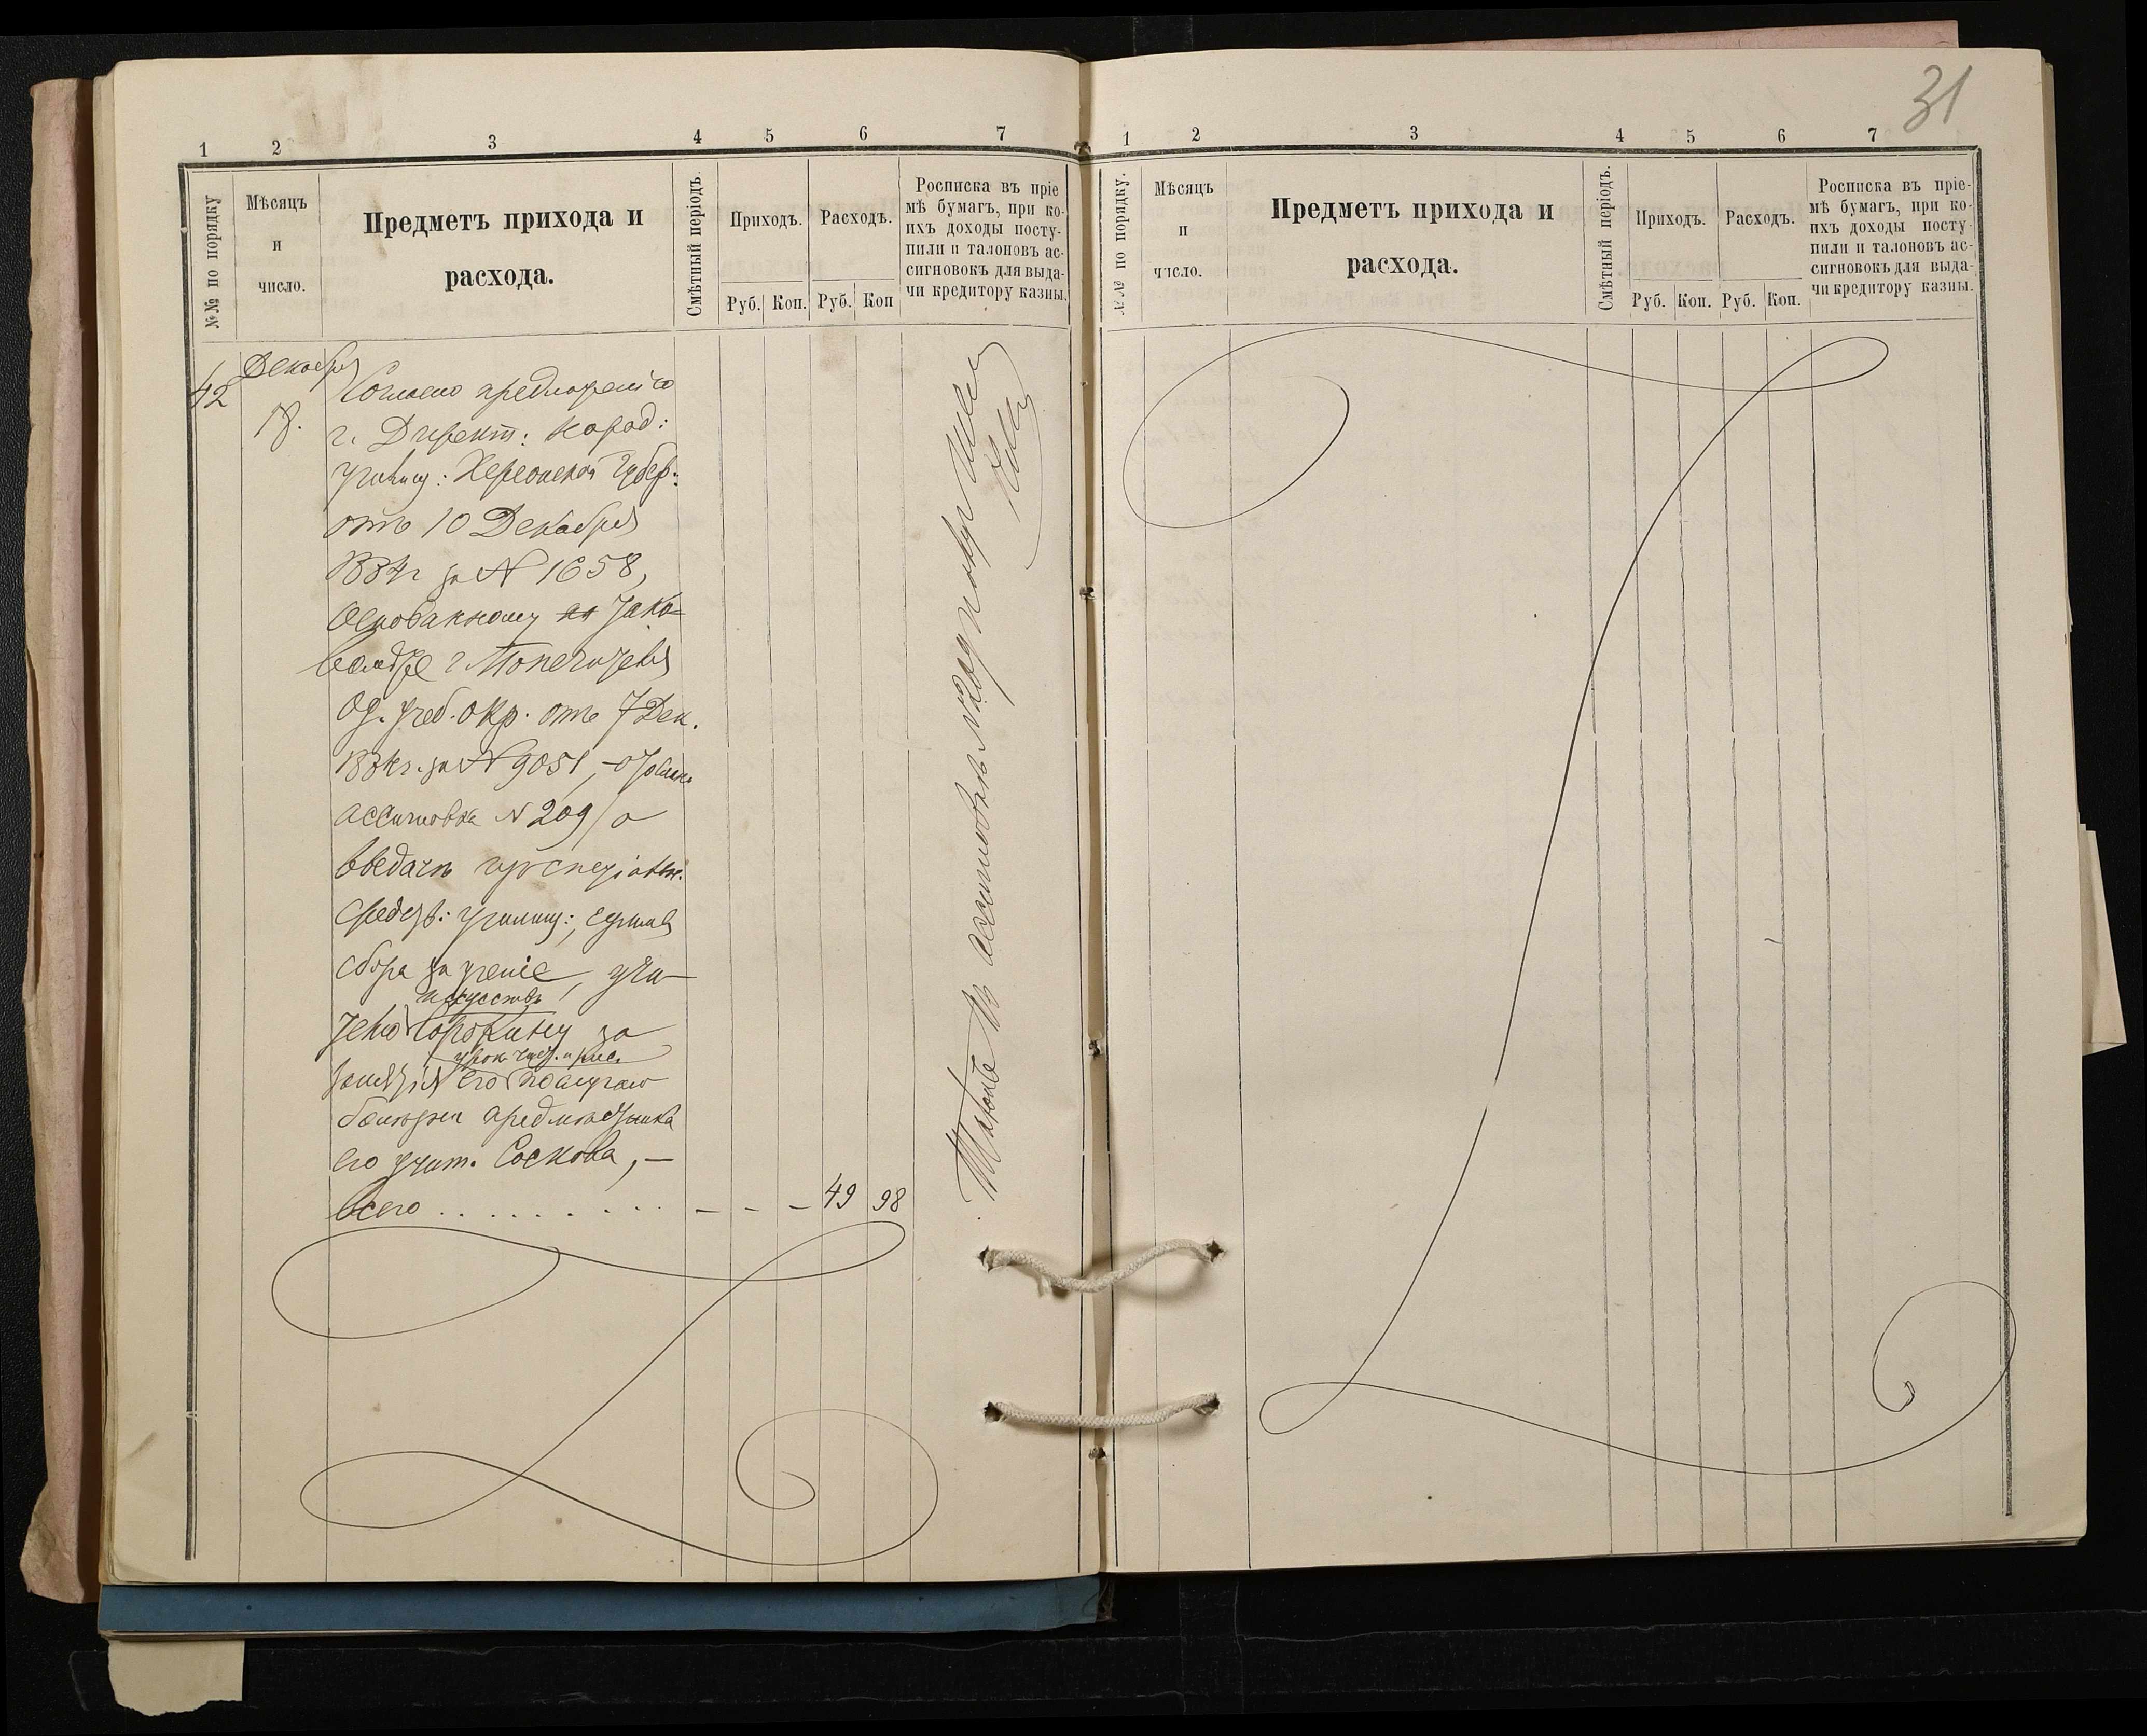 31
1 2 3 4 5 6 7
№№ по порядку
Мѣсяцъ
и
число.
Предметъ прихода и
расхода.
Смѣтный періодъ.
Приходъ.
Расходъ.
Руб. Коп. Руб. Коп
Росписка въ пріе
мѣ бумаг, при ко-
ихъ доходы посту-
пили и талоновъ ас-
сигновокъ для выда-
чи кредитору казны.
42
Декабря
18.
Согласно предложенію
г. Директ: народ:
училищ: Херсонской Губер:
отъ 10 Декабря
1884г за № 1658,
Основанному на
г Попечителя
Од. учеб. окр. отъ 7 Дек.
1884г. за № 9051,
ассигновка № 209, о
выдачѣ изъ спеціальн.
средств: училищ:, суммъ
сбора за ученіе, учи-
искусствъ
телю Сорокину за
занятія его по случаю
болезни предместника
его учит. Соскова, —
всего . . . . . . . . . . — — — 49 98
Талонъ къ ассигновкѣ № 209 получ
1 2 3 4 5 6 7
№№ по порядку.
Мѣсяцъ
и
число.
Предметъ прихода и
расхода.
Смѣтный періодъ.
Приходъ.
Расходъ.
Руб. Коп. Руб. Коп.
Росписка въ пріе-
мѣ бумаг, при ко-
ихъ доходы посту-
пили и талоновъ ас-
сигновокъ для выда-
чи кредитору казны.